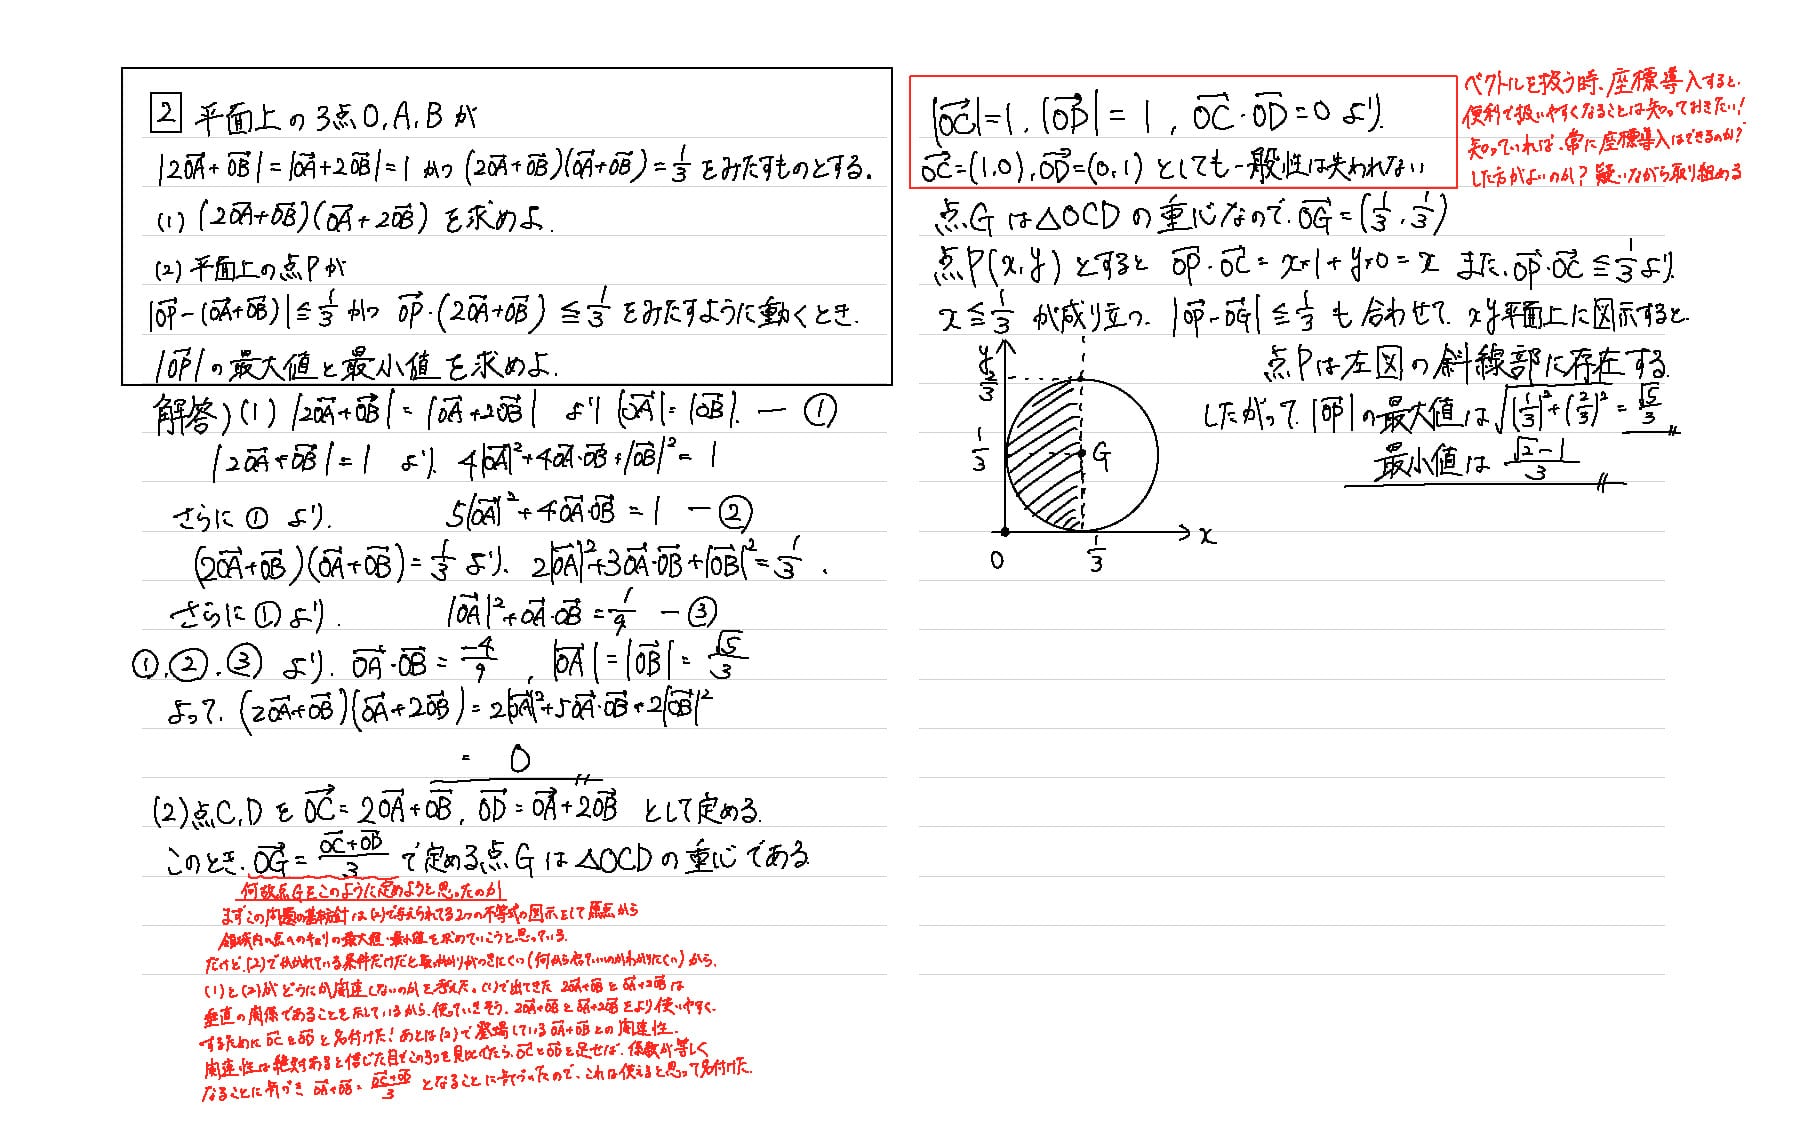 2 平面上の3点O,A,Bが
|2OA+OB|=|OA+2OB|=1 かつ (2OA+OB)(OA+OB)=1/3 をみたすものとする.
(1) (2OA+OB)(OA+2OB) を求めよ.
(2) 平面上の点Pが
|OP-(OA+OB)|≦1/3 かつ OP・(2OA+OB)≦1/3 をみたすように動くとき.
|OP|の最大値と最小値を求めよ.
解答)(1) |2OA+OB|=|OA+2OB| より |OA|=|OB|. ー①
|2OA+OB|=1 より. 4|OA|²+4OA・OB+|OB|²=1
さらに①より. 5|OA|²+4OA・OB=1 ー②
(2OA+OB)(OA+OB)=1/3 より. 2|OA|²+3OA・OB+|OB|²=1/3.
さらに①より. |OA|²+OA・OB=1/9 ー③
①.②.③ より. OA・OB=-4/9, |OA|=|OB|=√5/3
よって. (2OA+OB)(OA+2OB)=2|OA|²+5OA・OB+2|OB|²
= 0
(2)点C,Dを OC=2OA+OB, OD=OA+2OB として定める.
このとき. OG=(OC+OD)/3 で定める点Gは△OCDの重心である
何故点Gをこのように定めようと思ったのか
まずこの問題の基本方針は(2)で与えられてる2つの不等式の図示をして原点から
領域内の点へのキョリの最大値・最小値を求めていこうと思っている.
だけど、(2)でかかれている条件だけだと取っかかりがつきにくい(何から点ていいのかわかりにくい)から.
(1)と(2)がどうにか関連しないのかを考えた。(1)で出てきた 2OA+OBとOA+2OBは
垂直の関係であることを示しているから、使っていきそう. 2OA+OBとOA+2OBをより使いやすく.
するためにOCとODと名付けた! あとは(2)で登場しているOA+OBとの関連性.
関連性は絶対あると信じた目でこの3つを見比べたら、OCとODを足せば. 係数が等しく
なることに気づき OA+OB=(OC+OD)/3 となることに気づいたので、これは使えると思って名付けた.
|OC|=1. |OD|=1, OC・OD=0 より.
OC=(1,0), OD=(0,1) としても一般性は失われない
ベクトルを扱う時、座標導入すると.
便利で扱いやすくなることは知っておきたい!
知っていれば、常に座標導入はできるのか?
した方がよいのか? 疑いながら取り組める
点Gは△OCDの重心なので. OG=(1/3,1/3)
点P(x,y)とすると OP・OC=x*1+y*0=x また、OP・OC≦1/3 より.
x≦1/3 が成り立つ. |OP-OG|≦1/3 も合わせて. xy平面上に図示すると.
点Pは左図の斜線部に存在する.
したがって. |OP|の最大値は√((1/3)²+(2/3)²)=√5/3
最小値は (√2-1)/3
y
2/3
1/3
G
x
0
1/3